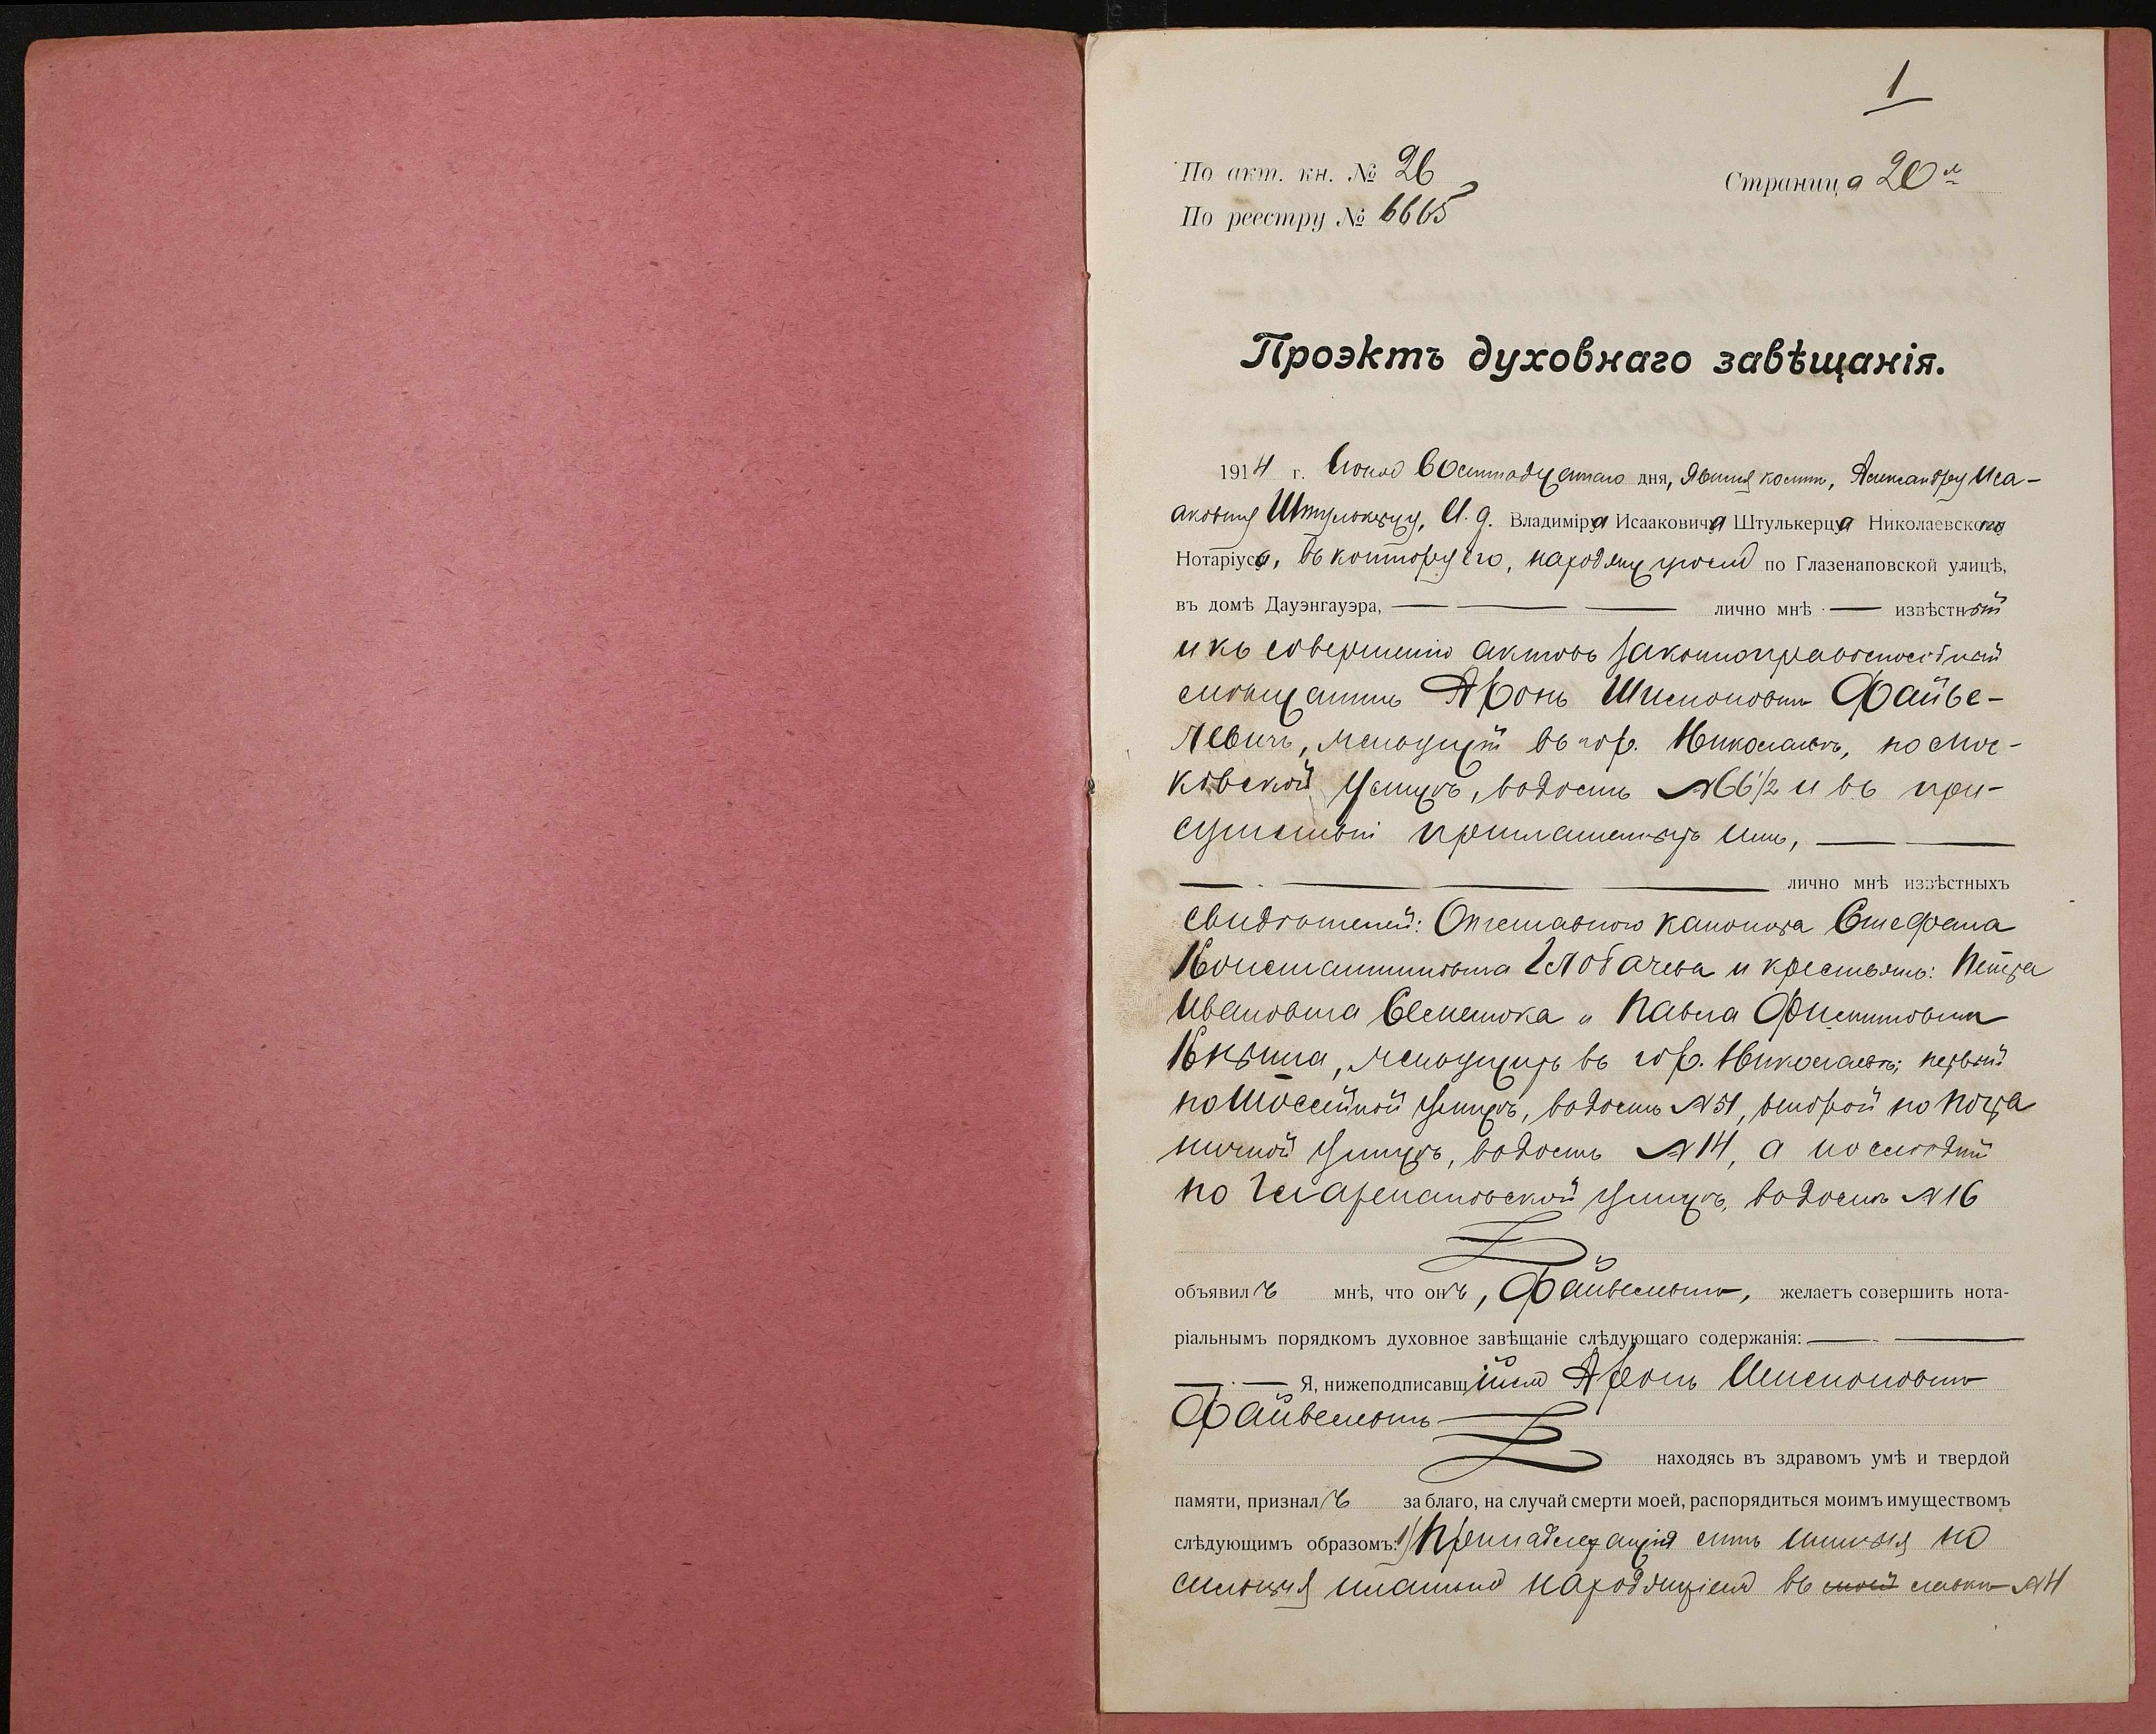 1
По акт. кн. № 26
Страница 20я
По реестру № 6665
Проэктъ духовнаго завѣщанія.
1914 г. восемнадцатаго дня, явился ко мнѣ, Александру Иса-
аковичу Штулькерцу, И. д. Владиміра Исааковича Штулькерца Николаевскаго
Нотаріуса, въ контору его, находящуюся по Глазенаповской улицѣ,
въ домѣ Дауэнгауэра, лично мнѣ извѣстный
и къ совершенію актовъ законноправоспособный
мѣщанинъ Аронъ Шимоновичъ Файве-
левичъ, живущій въ гор. Николаевѣ, по Мос-
ковской улицѣ, въ домѣ № 66 1/2 и въ при-
сутствіи приглашенныхъ имъ,
лично мнѣ извѣстныхъ
свидѣтелей: Отставного Стефана
Константиновича Глобачева и крестьянъ: Петра
Ивановича Семенюка и Павла Филипповича
живущихъ въ гор. Николаевѣ; первый
по Шоссейной улицѣ, въ домѣ № 51, второй по Погра
ничной улицѣ, въ домѣ № 14, а послѣдній
по Глазенаповской улицѣ, въ домѣ № 16
объявилъ мнѣ, что онъ, Файвелевичъ, желаетъ совершить нота-
ріальнымъ порядкомъ духовное завѣщаніе слѣдующаго содержанія:
Я, нижеподписавшійся Аронъ Шимоновичъ
Файвелевичъ
находясь въ здравомъ умѣ и твердой
памяти, призналъ за благо, на случай смерти моей, распорядиться моимъ имуществомъ
слѣдующимъ образомъ: 1) Принадлежащія
находящіеся въ моей лавкѣ № 4